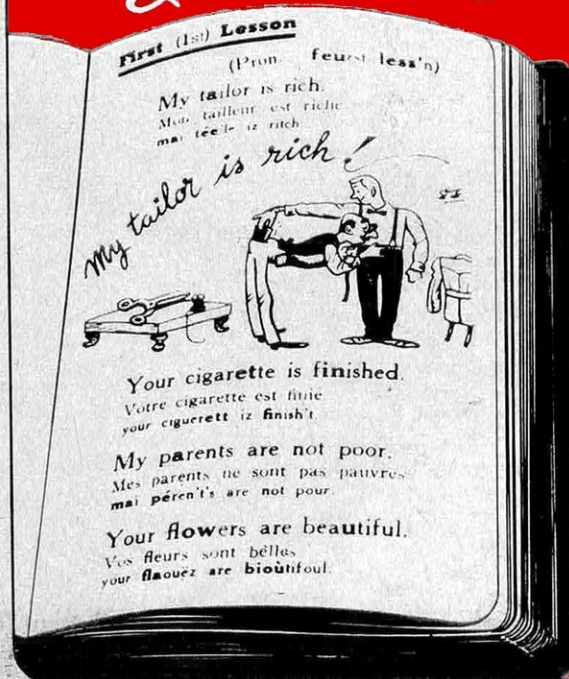 First (1st) Lesson
(Pron. feurst less'n)
My tailor is rich.
Mon tailleur est riche
maï tée'le iz ritch
My tailor is rich!
Your cigarette is finished.
Votre cigarette est finie
your ciguerett iz finish't.
My parents are not poor.
Mes parents ne sont pas pauvres
maï péren't's are not pour.
Your flowers are beautiful.
Vos fleurs sont belles
your flaouëz are bioùtifoul.